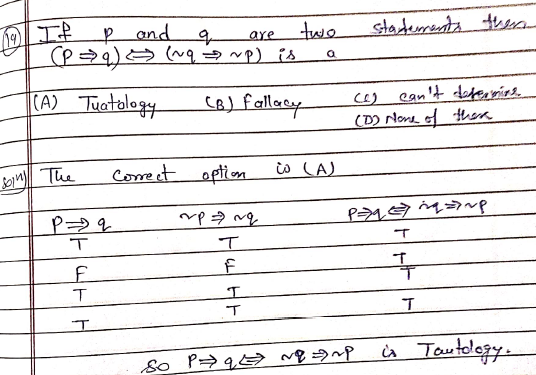 19) If p and q are two statements then
(p ⇒ q) ⇔ (~q ⇒ ~p) is a
(A) Tuatology (B) fallacy (C) can't determine
(D) None of these
Solⁿ) The correct option is (A)
P ⇒ q ~p ⇒ ~q P⇒q ⇔ ~q ⇒ ~p
T T T
F F T
T T T
T T T
So P ⇒ q ⇔ ~q ⇒ ~p is Tautology.